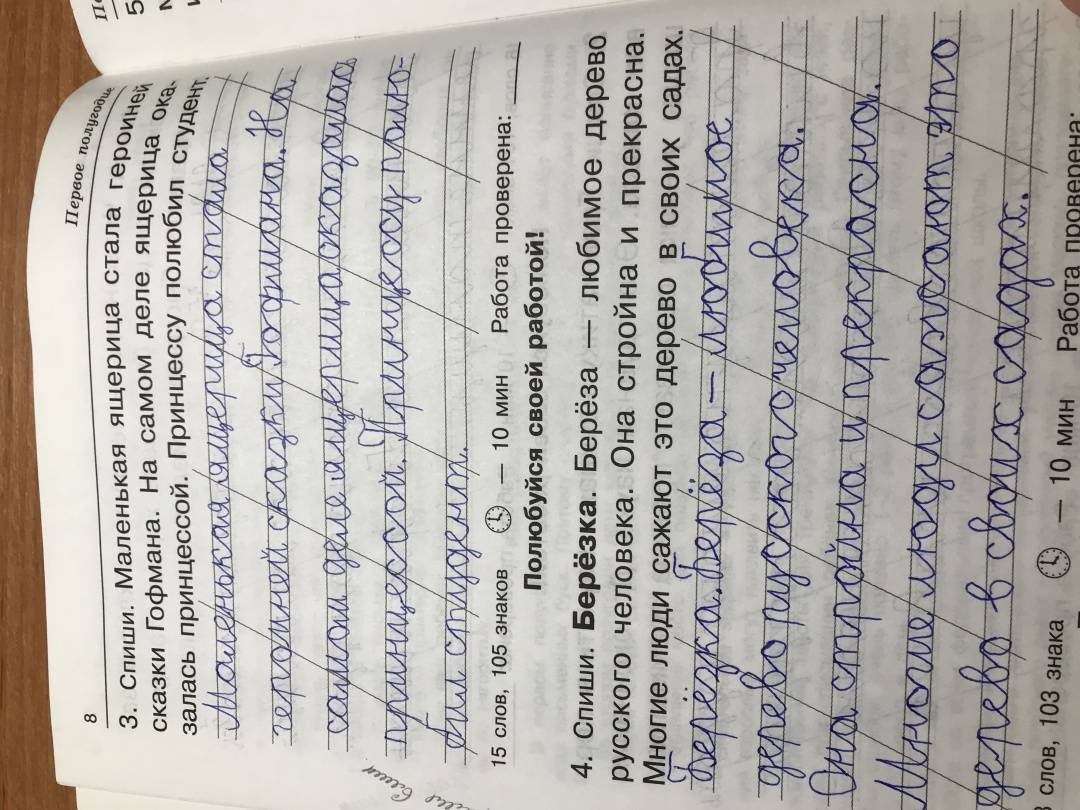 Первое полугодие
8
3. Спиши. Маленькая ящерица стала героиней
сказки Гофмана. На самом деле ящерица ока-
залась принцессой. Принцессу полюбил студент.
Маленькая ящерица стала
героиней сказки Гофмана. На
самом деле ящерица оказалась
принцессой. Принцессу полю-
бил студент.
15 слов, 105 знаков — 10 мин Работа проверена:
Полюбуйся своей работой!
4. Спиши. Берёзка. Берёза — любимое дерево
русского человека. Она стройна и прекрасна.
Многие люди сажают это дерево в своих садах.
Берёзка. Берёза — любимое
дерево русского человека.
Она стройна и прекрасна.
Многие люди сажают это
дерево в своих садах.
слов, 103 знака — 10 мин Работа проверена: